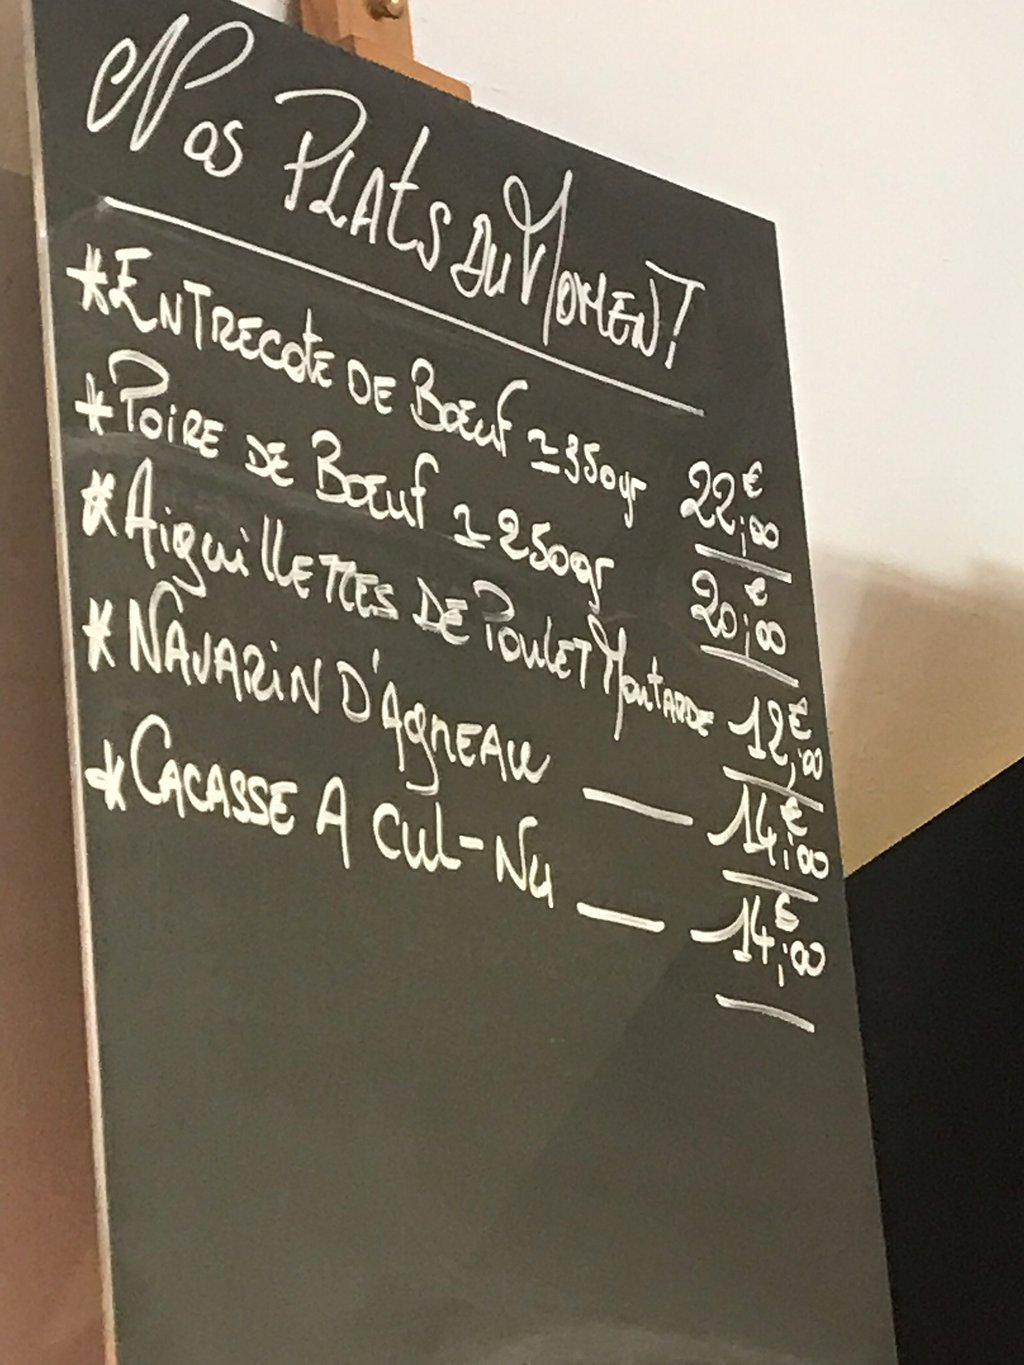 Nos Plats du Moment
* Entrecote de Bœuf ≃ 350gr 22€,00
* Poire de Bœuf ≃ 250gr 20€,00
* Aiguillettes de Poulet Moutarde 12€,00
* Navarin d'Agneau — 14€,00
* Cacasse a cul-nu — 14€,00